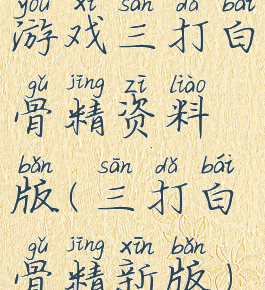 yóu xì sān dǎ bái
游戏三打白
gǔ jīng zī liào
骨精资料
bǎn sān dǎ bái
版(三打白
gǔ jīng xīn bǎn
骨精新版)